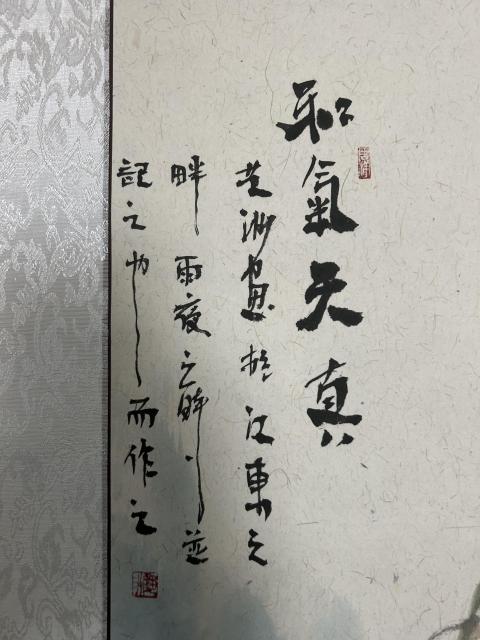 和氣天真
芝洲画於江東之
畔雨夜之畔並
記之也而作之